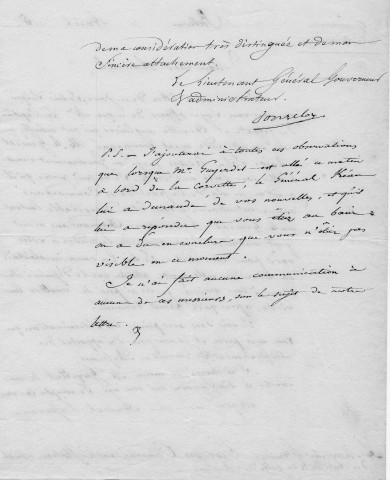 de ma considération très distinguée et de mon
Sincère attachement.
Le Lieutenant Général Gouverneur
L'administrateur.
P.S. - J'ajouterai à toutes ces observations
que lorsque Mr. est allé ce matin
à bord de la Corvette, le Général
lui a demandé de vos nouvelles, et qu'il
lui a répondu que vous étiez au bain =
on a dû en conclure que vous n'étiez pas
visible en ce moment.
Je n'ai fait aucune communication à
aucun de ces messieurs, sur le sujet de votre
lettre.